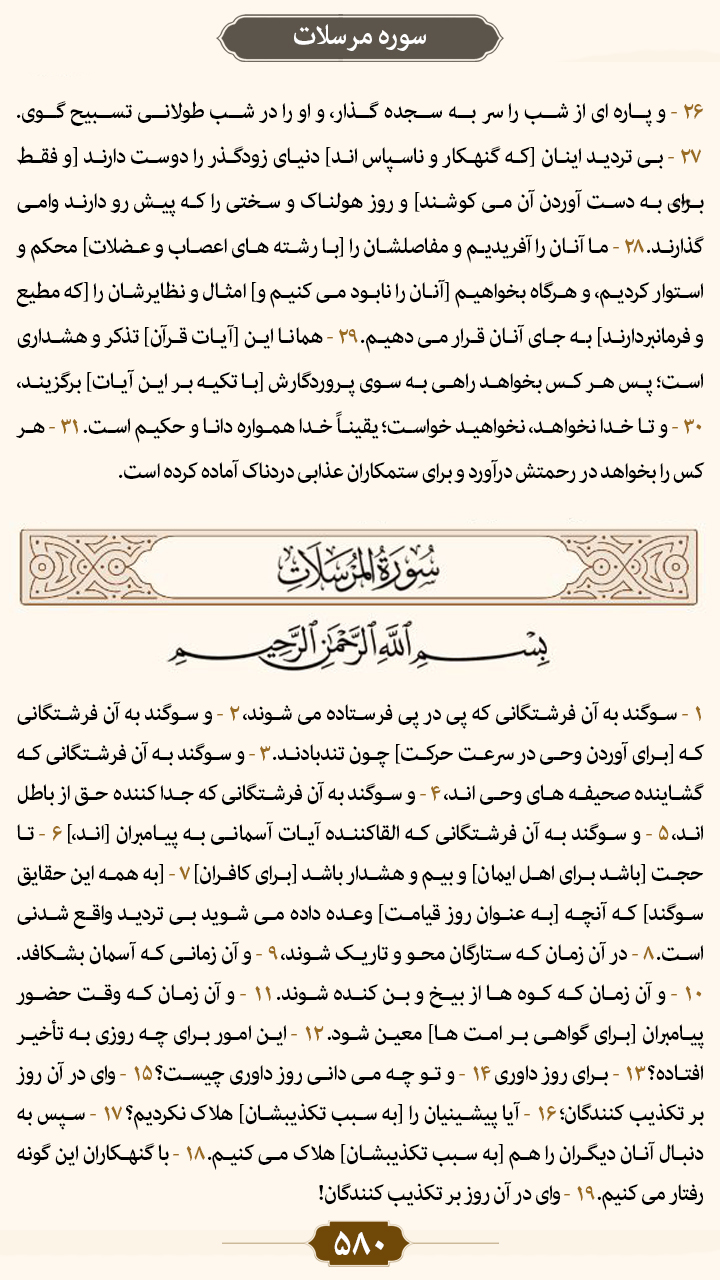 سوره مرسلات
۲۶ - و پاره ای از شب را سر به سجده گذار، و او را در شب طولانی تسبیح گوی.
۲۷ - بی تردید اینان [که گنهکار و ناسپاس اند] دنیای زودگذر را دوست دارند [و فقط
برای به دست آوردن آن می کوشند] و روز هولناک و سختی را که پیش رو دارند وامی
گذارند. ۲۸ - ما آنان را آفریدیم و مفاصلشان را [با رشته های اعصاب و عضلات] محکم و
استوار کردیم، و هرگاه بخواهیم [آنان را نابود می کنیم و] امثال و نظایرشان را [که مطیع
و فرمانبردارند] به جای آنان قرار می دهیم. ۲۹ - همانا این [آیات قرآن] تذکر و هشداری
است؛ پس هر کس بخواهد راهی به سوی پروردگارش [با تکیه بر این آیات] برگزیند،
۳۰ - و تا خدا نخواهد، نخواهید خواست؛ یقیناً خدا همواره دانا و حکیم است. ۳۱ - هر
کس را بخواهد در رحمتش درآورد و برای ستمکاران عذابی دردناک آماده کرده است.
سُورَةُ المُرسَلَاتِ
بِسْمِ ٱللَّهِ ٱلرَّحْمَٰنِ ٱلرَّحِيمِ
۱ - سوگند به آن فرشتگانی که پی در پی فرستاده می شوند، ۲ - و سوگند به آن فرشتگانی
که [برای آوردن وحی در سرعت حرکت] چون تندبادند. ۳ - و سوگند به آن فرشتگانی که
گشاینده صحیفه های وحی اند، ۴ - و سوگند به آن فرشتگانی که جدا کننده حق از باطل
اند، ۵ - و سوگند به آن فرشتگانی که القاکننده آیات آسمانی به پیامبران [اند،] ۶ - تا
حجت [باشد برای اهل ایمان] و بیم و هشدار باشد [برای کافران] ۷ - [به همه این حقایق
سوگند] که آنچه [به عنوان روز قیامت] وعده داده می شوید بی تردید واقع شدنی
است. ۸ - در آن زمان که ستارگان محو و تاریک شوند، ۹ - و آن زمانی که آسمان بشکافد.
۱۰ - و آن زمان که کوه ها از بیخ و بن کنده شوند. ۱۱ - و آن زمان که وقت حضور
پیامبران [برای گواهی بر امت ها] معین شود. ۱۲ - این امور برای چه روزی به تأخیر
افتاده؟ ۱۳ - برای روز داوری ۱۴ - و تو چه می دانی روز داوری چیست؟ ۱۵ - وای در آن روز
بر تکذیب کنندگان؛ ۱۶ - آیا پیشینیان را [به سبب تکذیبشان] هلاک نکردیم؟ ۱۷ - سپس به
دنبال آنان دیگران را هم [به سبب تکذیبشان] هلاک می کنیم. ۱۸ - با گنهکاران این گونه
رفتار می کنیم. ۱۹ - وای در آن روز بر تکذیب کنندگان!
۵۸۰